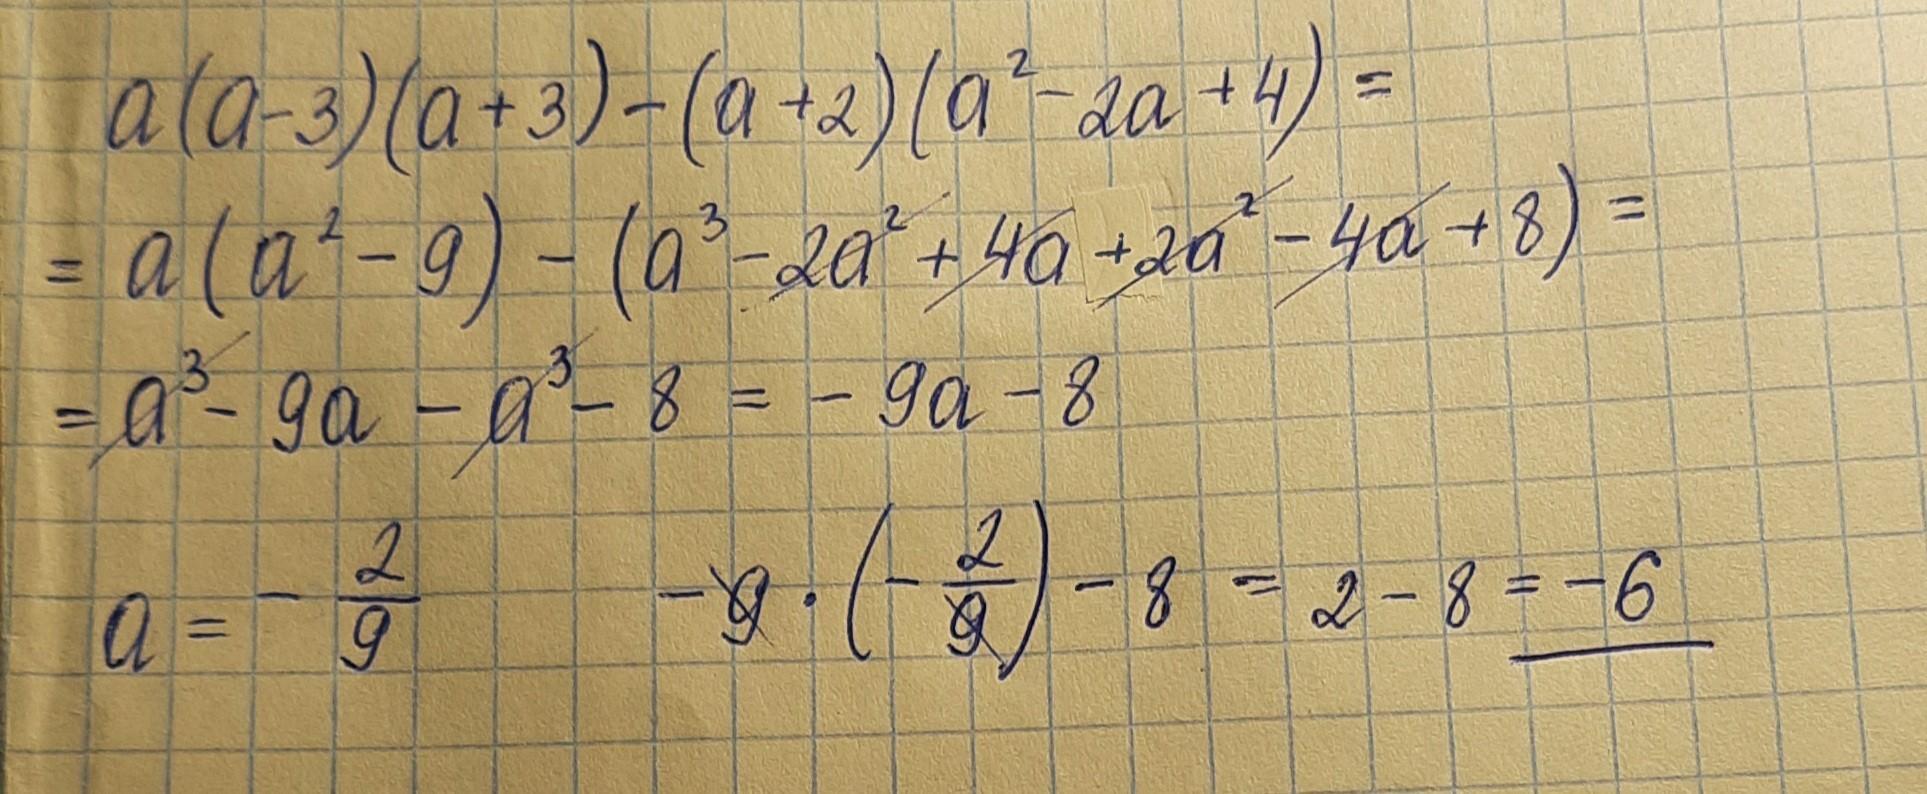 a(a-3)(a+3)-(a+2)(a²-2a+4)=
=a(a²-9)-(a³-2a²+4a+2a²-4a+8)=
=a³-9a-a³-8=-9a-8
a=-2/9 -9·(-2/9)-8=2-8=-6